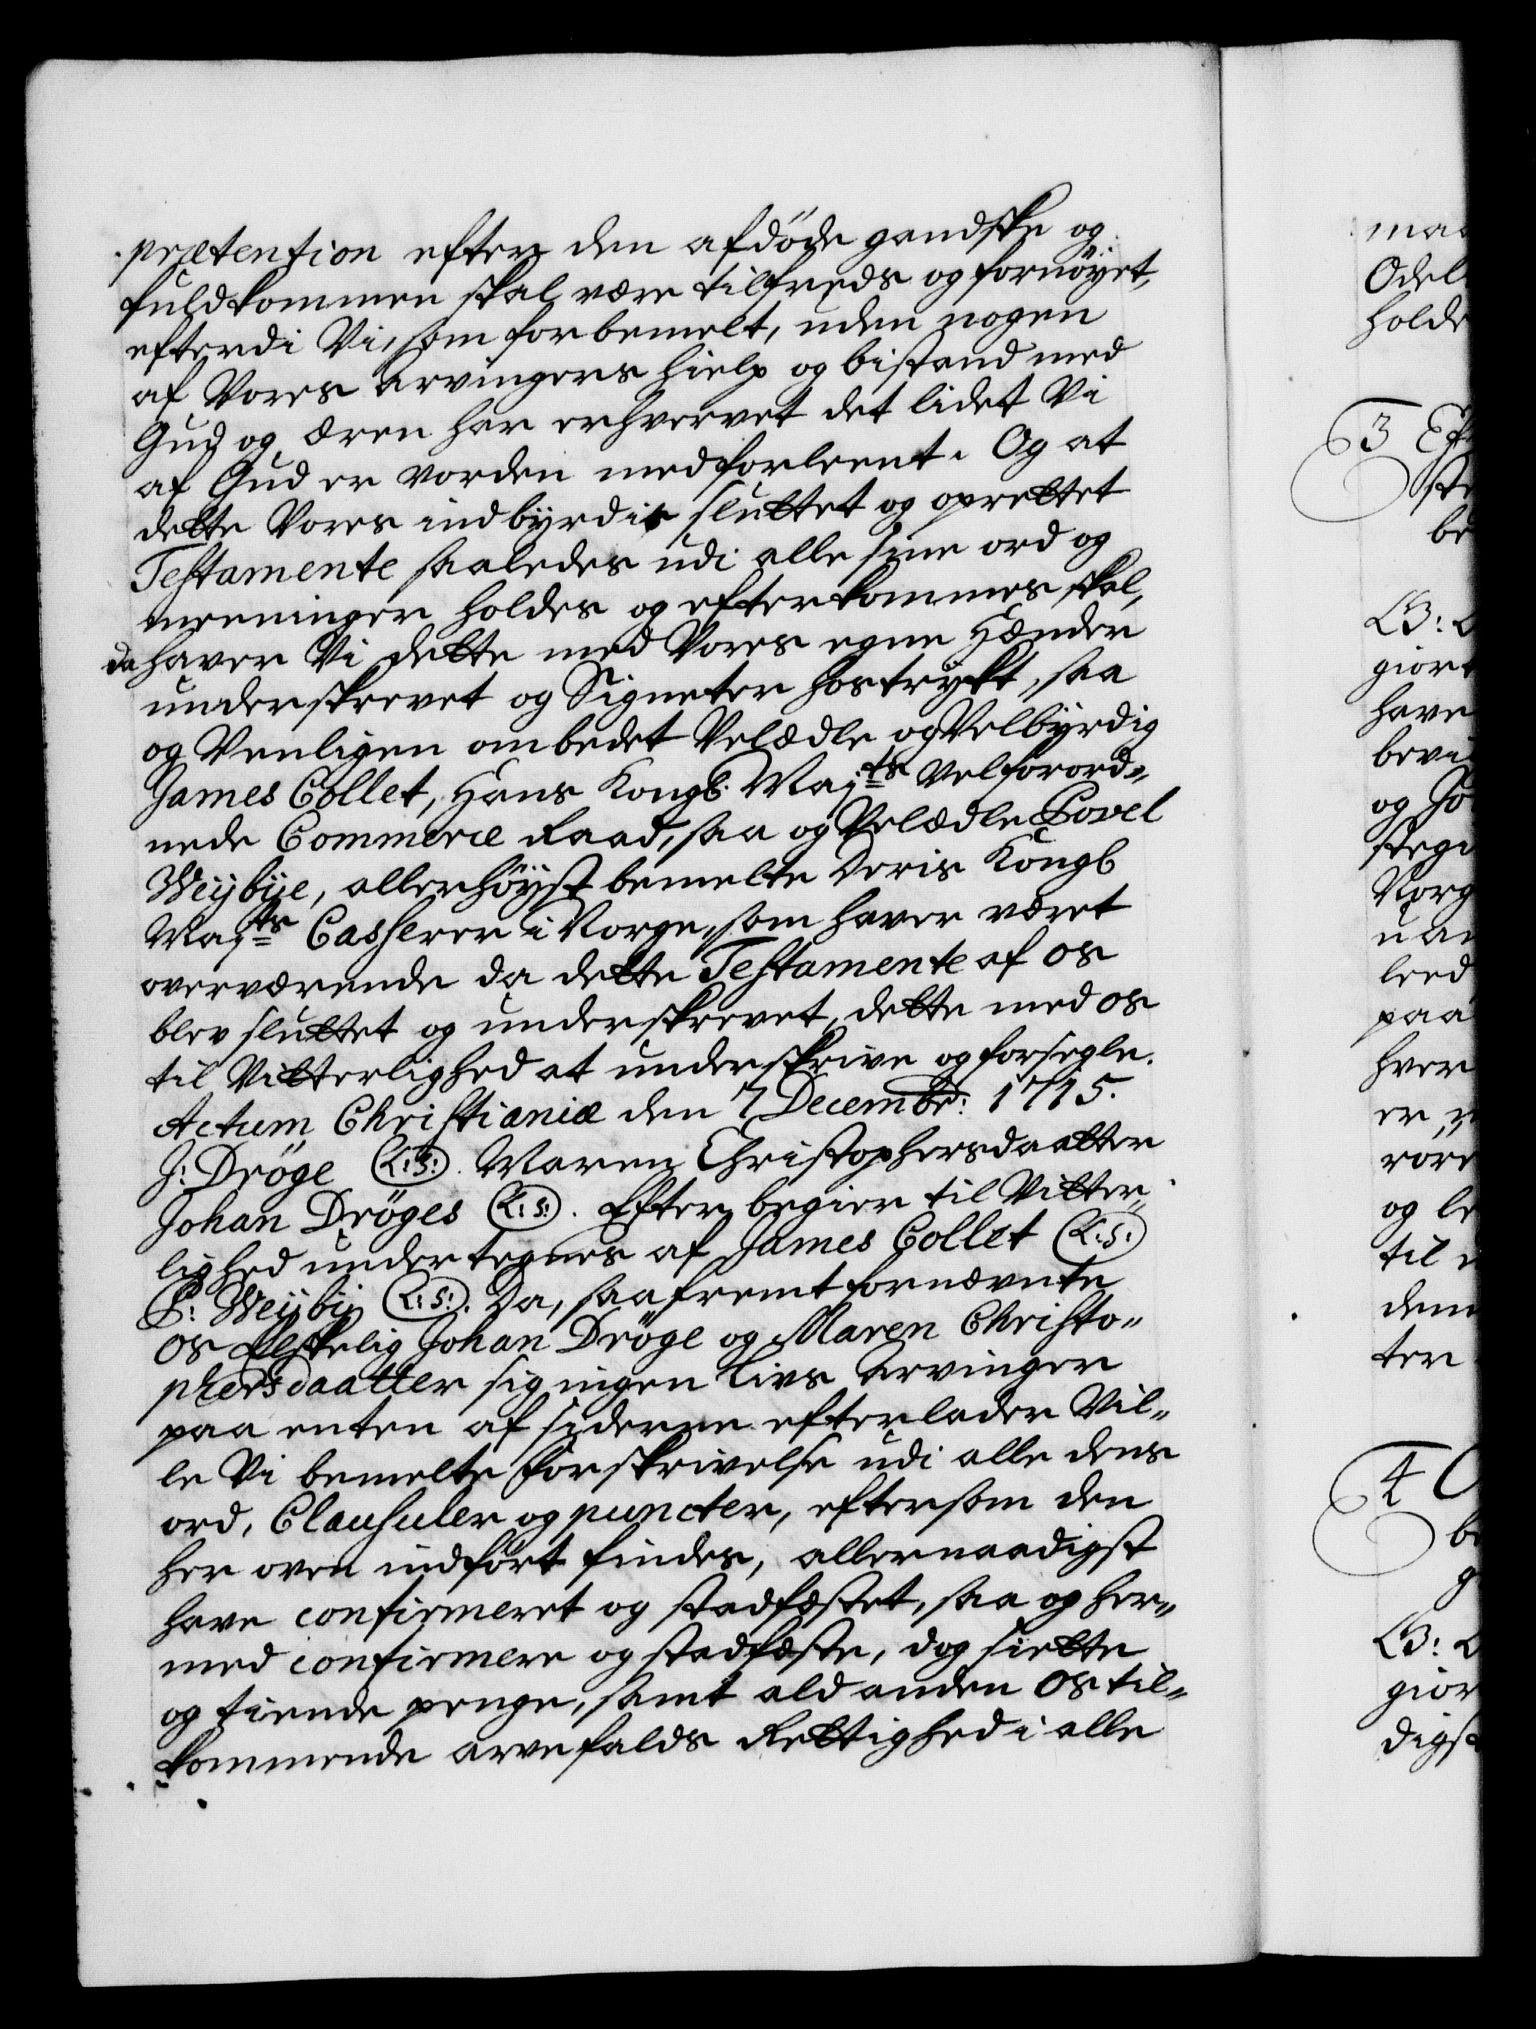 prætention efter den afdøde gandske og
fuldkommen skal være tilfreds og fornöyet,
efterdi Vi, som forbemelt, uden nogen
af Vores Arvingers hielp og bistand med
Gud og Æren har erhvervet det lidet Vi
af Gud er vorden medforleent. Og at
dette Vores indbyrdis sluttet og oprettet
Testamente saaledes udi alle sine ord og
meeninger holdes og efterkommes skal,
da haver Vi dette med Vores egne Hænder
underskrevet og Signeter hostrykt, saa
og Venligen ombedet Velædle og Velbyrdig
James Collet, Hans Kongl. Maj:ts Velforord-
nede Commerce Raad, saa og Velædle Povel
Weybye, allerhöyst bemelte Deris Kongl
Maj:ts Casserer i Norge, som haver været
overværende da dette Testamente af os
blev sluttet og underskrevet, dette med os
til Vitterlighed at underskrive og forsegle.
Actum Christianiæ den 7 Decembr: 1715.
J: Dröge (L:S:). Maren Christophersdaatter
Johan Dröges (L:S:). Efter begier til Vitter-
lighed undertegnes af James Collet (L:S:)
P: Weyby (L:S:). Da, saafremt fornævnte
os Elskelig Johan Dröge og Maren Christo-
phersdaatter sig ingen Livs Arvinger
paa enten af siderne efterlader Vil-
le Vi bemelte forskrivelse udi alle dens
ord, Clausuler og puncter, eftersom den
her oven indfört findes, allernaadigst
have confirmeret og stadfæstet, saa og her-
med confirmere og stadfæste, dog siette
og tiende penge, samt ald anden Os til-
kommende arvefalds Rettighed i alle
maa
Odel
holde
3 Eft
ste
be
B: L
giort
have
bevi
og Jo
stegi
Norg
uan
leed
paa
hver
er
röre
og le
til
dem
ter
4
be
g
B: L
gior
digst